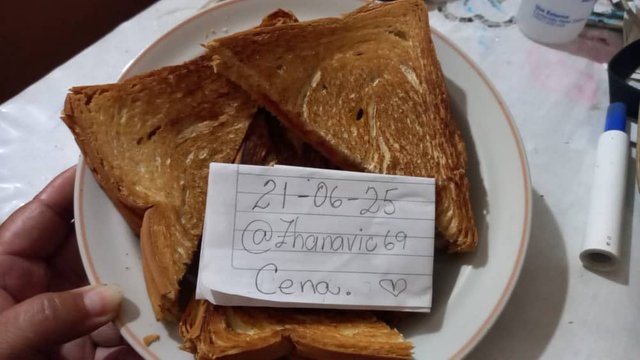 21-06-25
@Zhanavic69
Cena. ♡